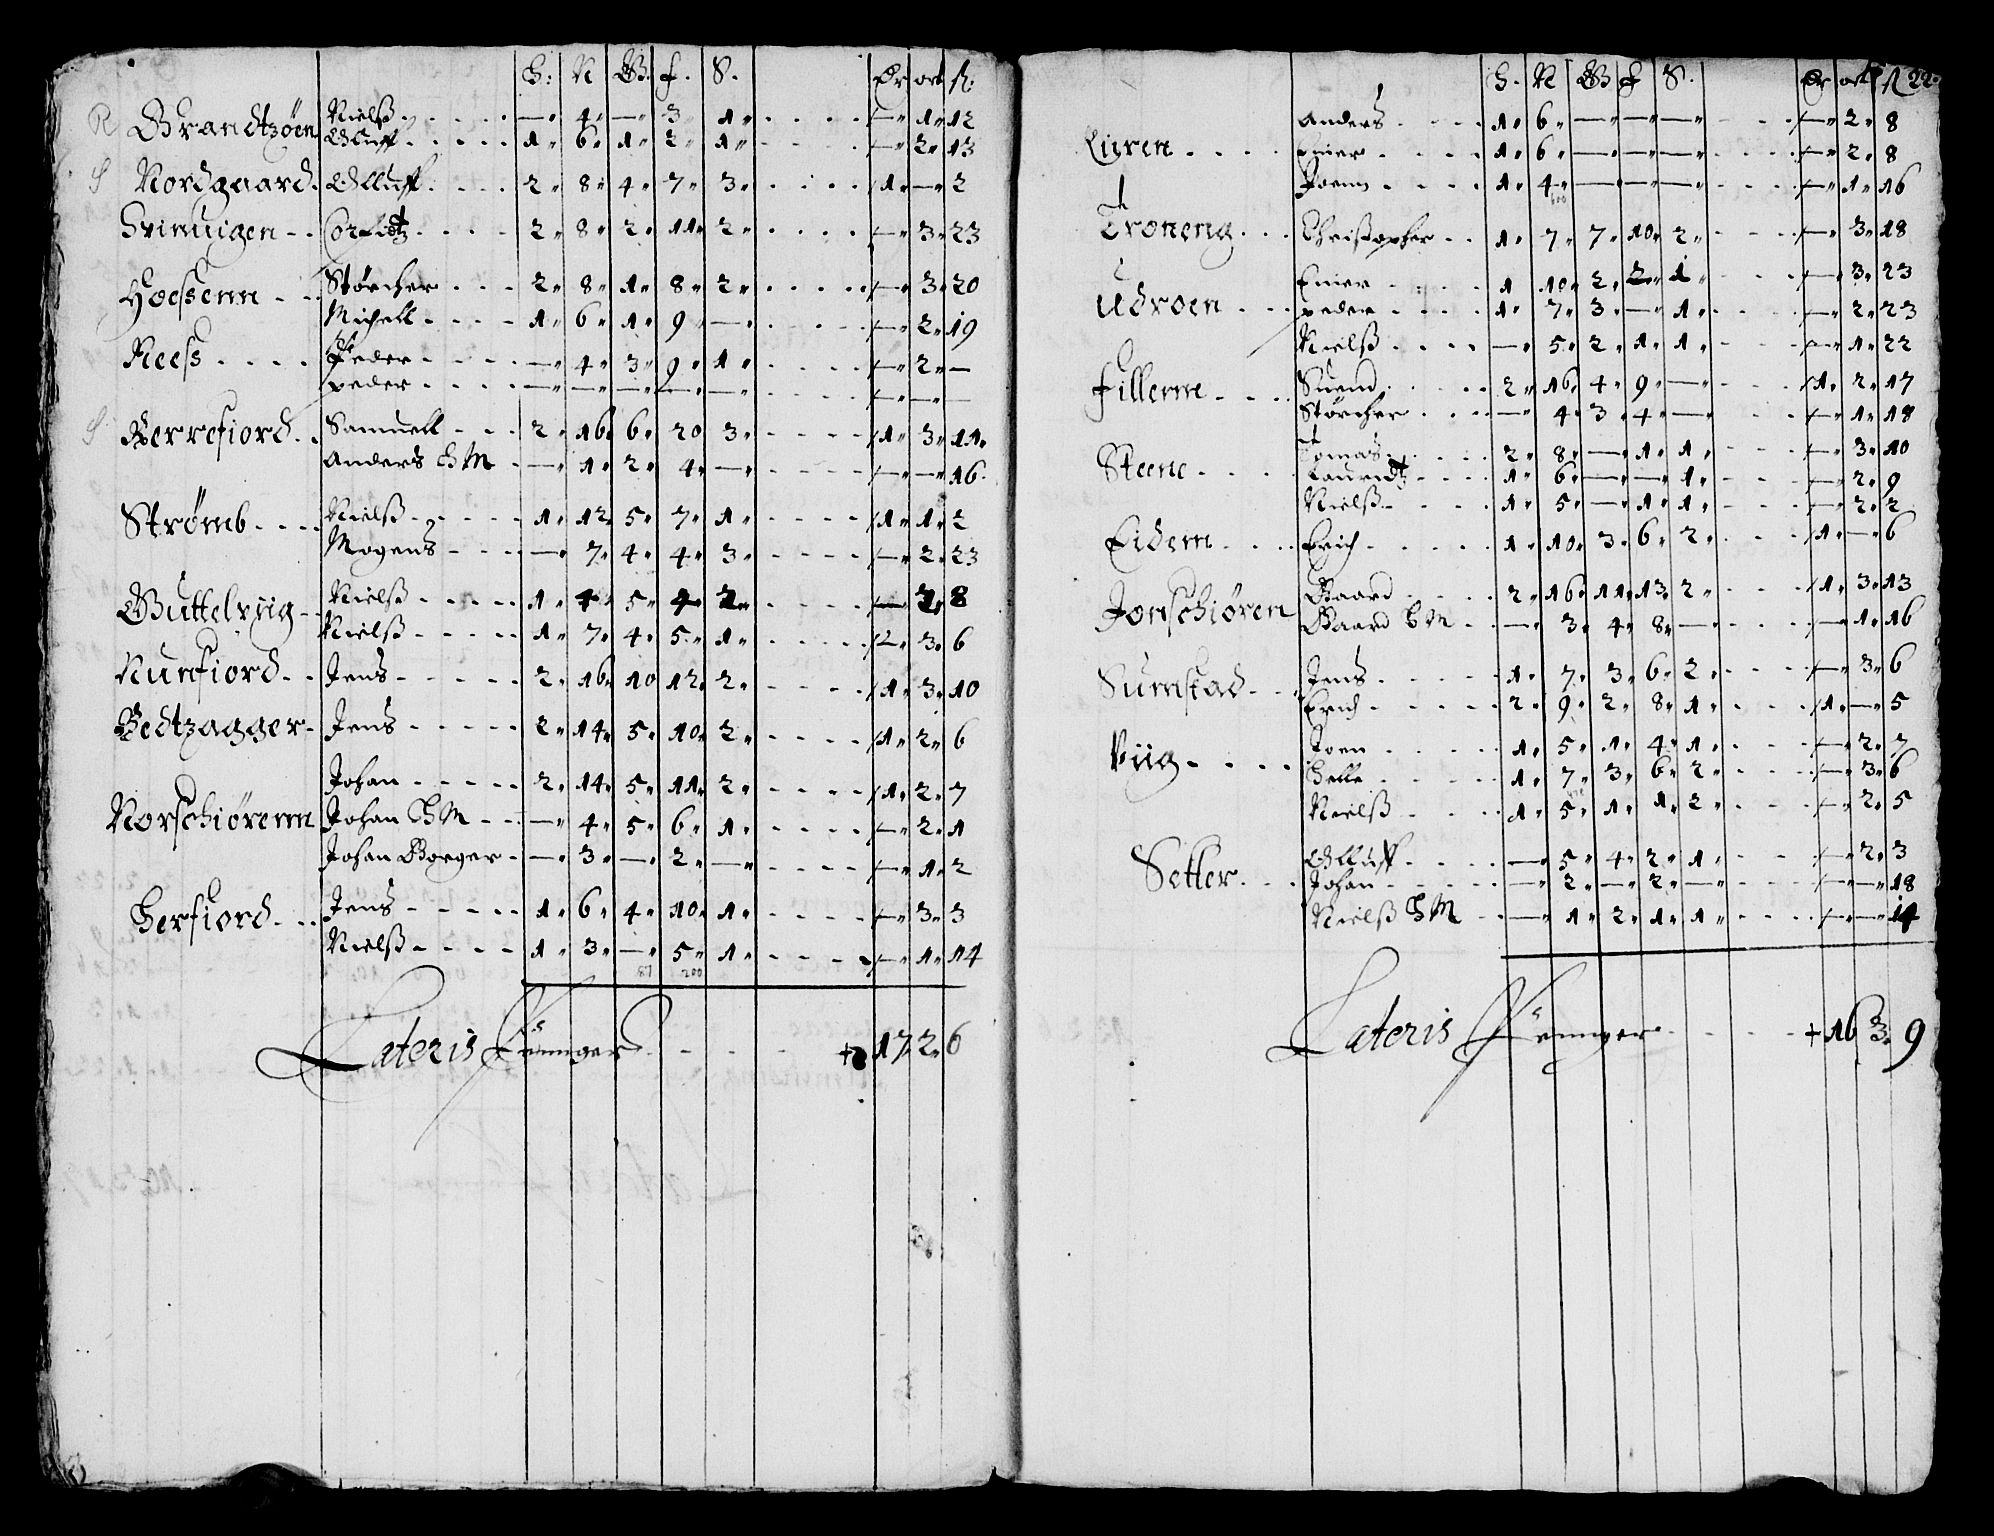 H: N B. F. S. Dr ort ß.
R Brandtzøen Nielß — 4 — 3 1 — 1 12
Olluff 1 6 1 2 1 — 2 13
S Nordgaard Olluff 2 8 4 7 3 1 — 2
Hvinuigen Corfidtz 2 8 2 11 2 — 3 23
Hoessenn Størcher 2 8 1 8 2 — 3 20
Michell 1 6 1 9 — — 2 19
Reess Peder — 4 3 9 1 — 2 —
peder — — — — — — — —
S Kerrefiord Samuell 2 16 6 20 3 1 3 11
Anders HM — 1 2 4 — — — 16
Strømb Nielß 1 12 5 7 1 1 1 2
Mogens — 7 4 4 3 — 2 23
Buttelviig Nielß 1 4 5 4 2 — 2 8
Nielß 1 7 4 5 1 2 3 6
Nunfiord Jens 2 16 10 12 2 1 3 10
Bedtzagger Jens 2 14 5 10 2 1 2 6
Norschiørenn Johan 2 14 5 11 2 1 2 7
Johan HM — 4 5 6 1 — 2 1
Johan Borger — 3 — 2 — — 1 2
Herfiord Jens 1 6 4 10 1 — 3 3
Nielß 1 3 — 5 1 — 1 14
87 200
Lateris Penger 17 2 6
H. N B F S. Dr ort ß 22
Anders 1 6 — — — — 2 8
Liuren Einer 1 6 — — — — 2 8
Joenn 1 4 — — — — 1 16
Troneng Christopher 1 7 7 10 2 — 3 18
Udroen Einer 1 10 2 2 1 — 3 23
peder 1 7 3 — 1 — 2 23
Nielß — 5 2 1 1 — 1 22
Fillenn Suend 2 16 4 9 — 1 2 17
Størcher — 4 3 4 — — 1 18
Steene Tomas 2 8 — 1 1 — 3 10
Lauridtz 1 6 — — 1 — 2 9
Nielß 1 5 — 1 1 — 2 2
Eidem Erich 1 10 3 6 2 1 — 6
Jonschiøren Baard 2 16 11 13 2 1 3 13
Baard HM — 3 4 8 — — 1 16
Sumstad Jens 1 7 3 6 2 — 3 6
Erich 2 9 2 8 1 1 — 5
Viig Joen 1 5 1 4 1 — 2 7
Helle 1 7 3 6 2 — 3 6
Nielß 1 5 1 1 2 — 2 5
Setter Olluff — 5 4 2 1 — 2 3
Johan — 2 — 2 — — — 18
Nielß HM — 1 2 1 1 — — 14
Lateris Penger 16 3 9